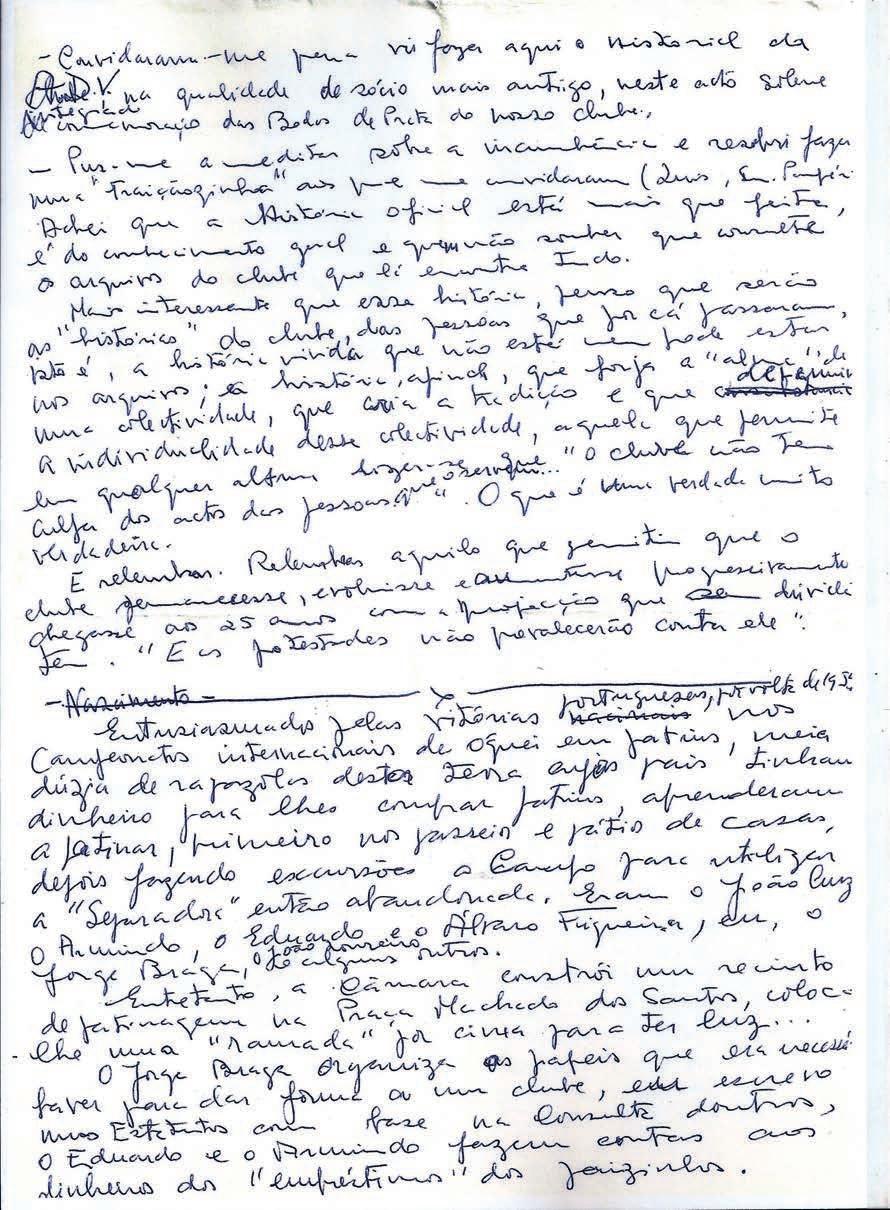 - Convidaram-me para vir fazer aqui o Historial da
A.D.V. na qualidade de sócio mais antigo, neste acto solene
integrado
de comemoração das Bodas de Prata do nosso clube.
- Pus-me a meditar sôbre a incumbência e resolvi fazer
uma "traiçãozinha" aos que me convidaram (
Achei que a História Oficial está mais que feita,
é do conhecimento geral e quem não souber que consulte
os arquivos do clube que lá encontra tudo.
Mais interessante que essa história, penso que serão
as "histórias" do clube, das pessoas que por cá passaram,
isto é, a história vivida que não está nem pode estar
nos arquivos; a história, afinal, que forja a "alma" de
uma colectividade, que cria a tradição e que define
a individualidade dessa colectividade, aquela que permite
em qualquer altura dizer-se que... "O clube não tem
culpa dos actos das pessoas que o servem". O que é uma verdade muito
verdadeira.
E relembrar. Relembrar aquilo que permitiu que o
clube permanecesse, evoluisse e aumentasse progressivamente
chegasse aos 25 anos com a projecção que sem dúvida
tem. "E as potestades não prevalecerão contra ele".
- Nascimento -
Entusiasmados pelas vitórias portuguesas, por volta de 195 nos
Campeonatos internacionais de óquei em patins, meia
dúzia de rapazolas desta terra cujos pais tinham
dinheiro para lhes comprar patins, aprenderam
a patinar, primeiro nos passeios e pátio de casas,
depois fazendo excursões a Campo para utilizar
a "Separadora" então abandonada. Eram o João Cruz
o Armindo, o Eduardo e o Álvaro Figueira, eu, o
Jorge Braga, o João Loureiro e alguns outros.
Entretanto, a Câmara constrói um recinto
de patinagem na Praça Machado dos Santos, coloca-
lhe uma "ramada" por cima para ter luz...
O Jorge Braga organiza os papeis que era necessá
haver para dar forma a um clube, eu escrevo
uns Estatutos com base na Consulta doutros,
o Eduardo e o Armindo fazem contas aos
dinheiros dos "empréstimos" dos paizinhos.